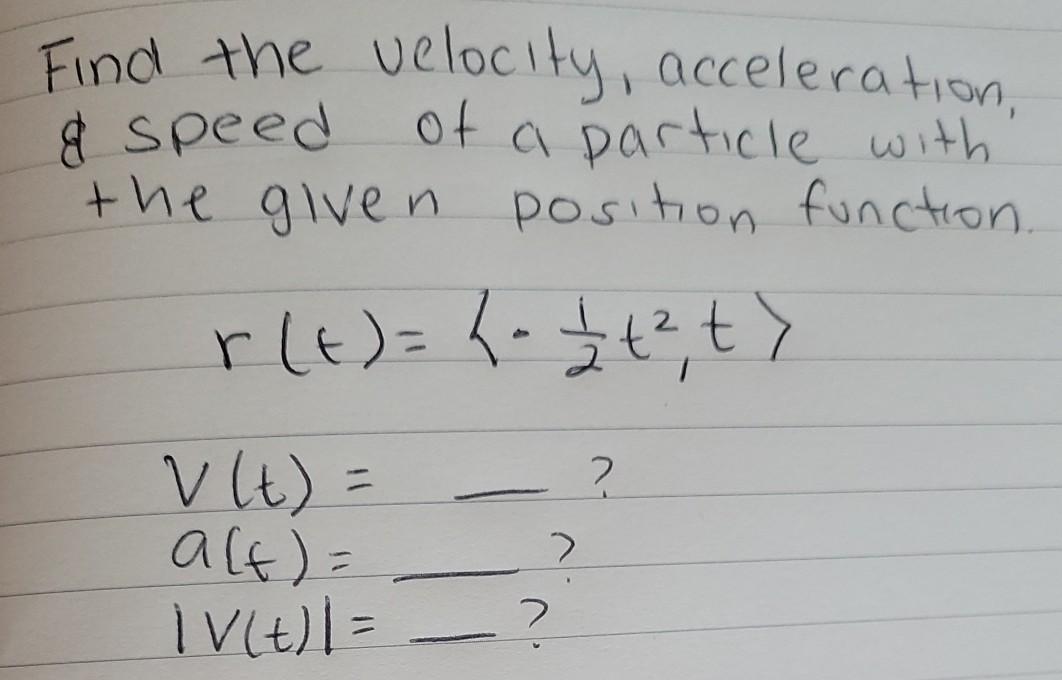 Find the velocity, acceleration,
& speed of a particle with
the given position function.
r(t) = ⟨-½t², t⟩
V(t) = __ ?
a(t) = ___ ?
|V(t)| = __ ?